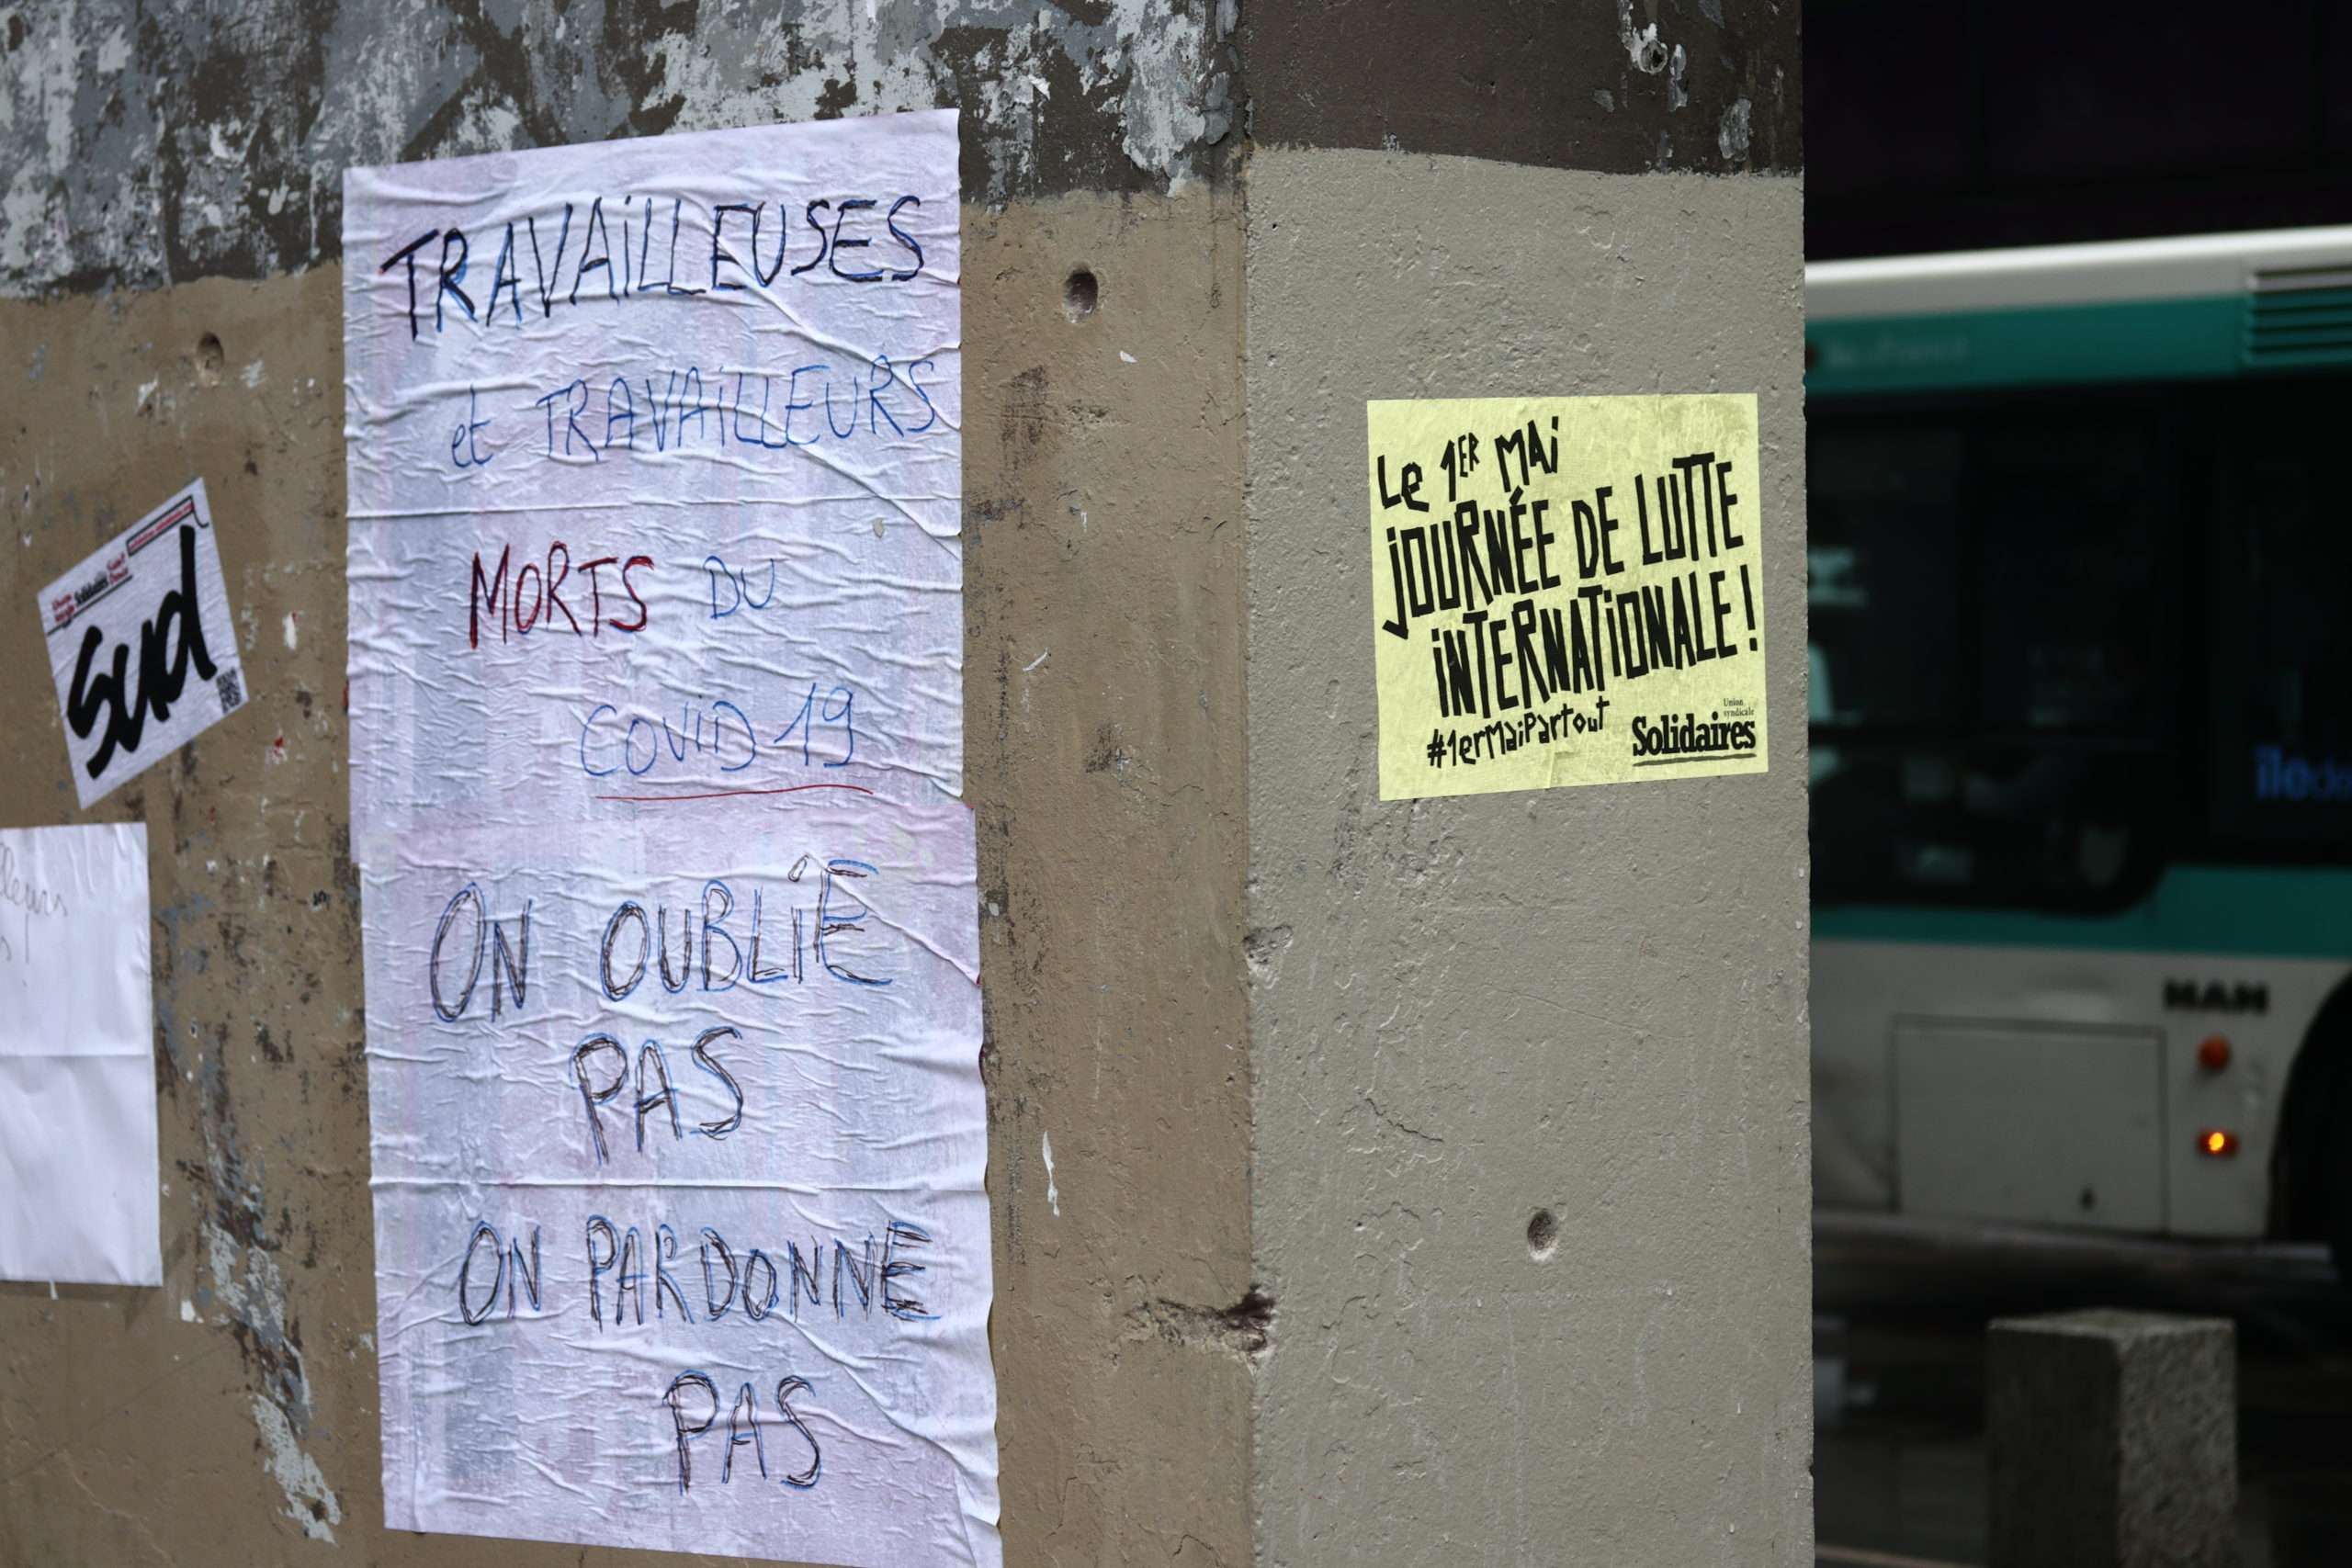 TRAVAiLLEUSES
et TRAVAiLLEURS
MORTS DU
COViD 19
ON OUBLiE
PAS
ON PARDONNE
PAS
Solidaires
Sud
Le 1ER MAi
JOURNÉE DE LUTTE
iNTERNATiONALE!
#1erMaiPartout
Union
syndicale
Solidaires
îlede
MAN